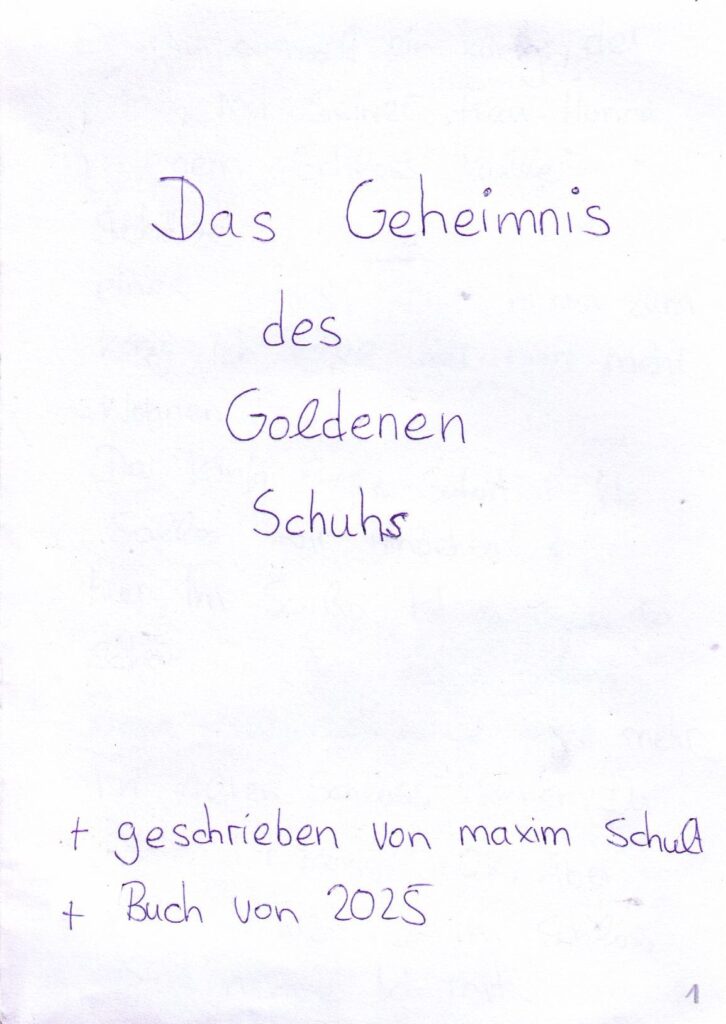 Das Geheimnis
des
Goldenen
Schuhs
+ geschrieben von maxim Schult
+ Buch von 2025
1